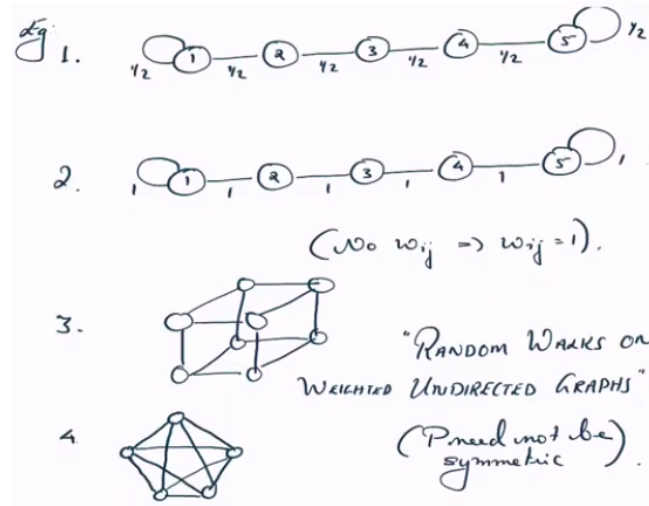 Eg 1.
1 2 3 4 5
1/2 1/2 1/2 1/2 1/2 1/2
2.
1 2 3 4 5
1 1 1 1 1 1
(No wij => wij = 1).
3.
"RANDOM WALKS ON
WEIGHTED UNDIRECTED GRAPHS"
4.
(P need not be
symmetric).